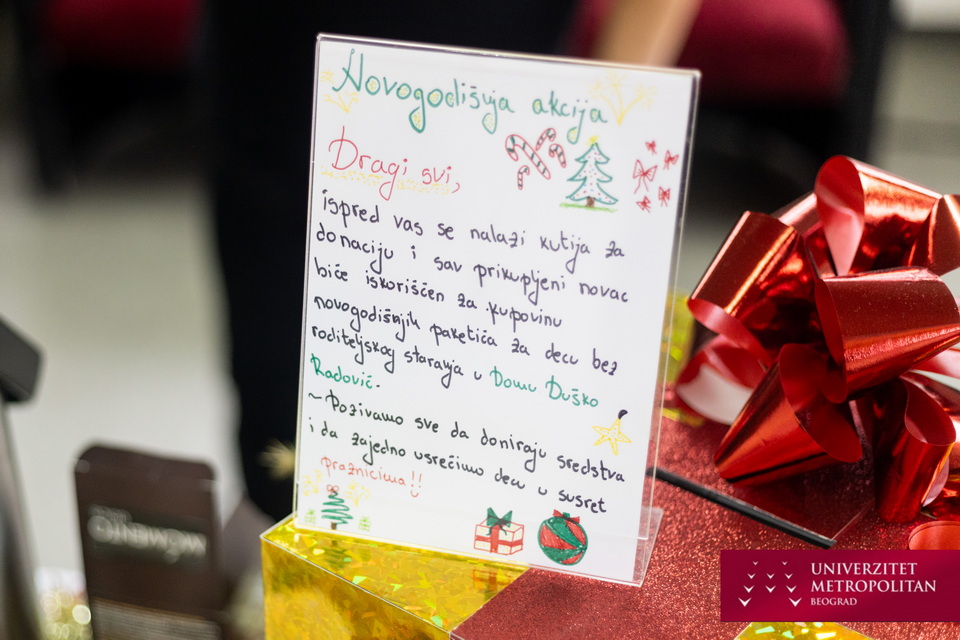 Novogodišnja akcija
Dragi svi,
ispred vas se nalazi kutija za
donaciju i sav prikupljeni novac
biće iskorišćen za kupovinu
novogodišnjih paketića za decu bez
roditeljskog staranja u Domu Duško
Radović.
~Pozivamo sve da doniraju sredstva
i da zajedno usrećimo decu u susret
praznicima!!
MOMENTO
UNIVERZITET
METROPOLITAN
BEOGRAD